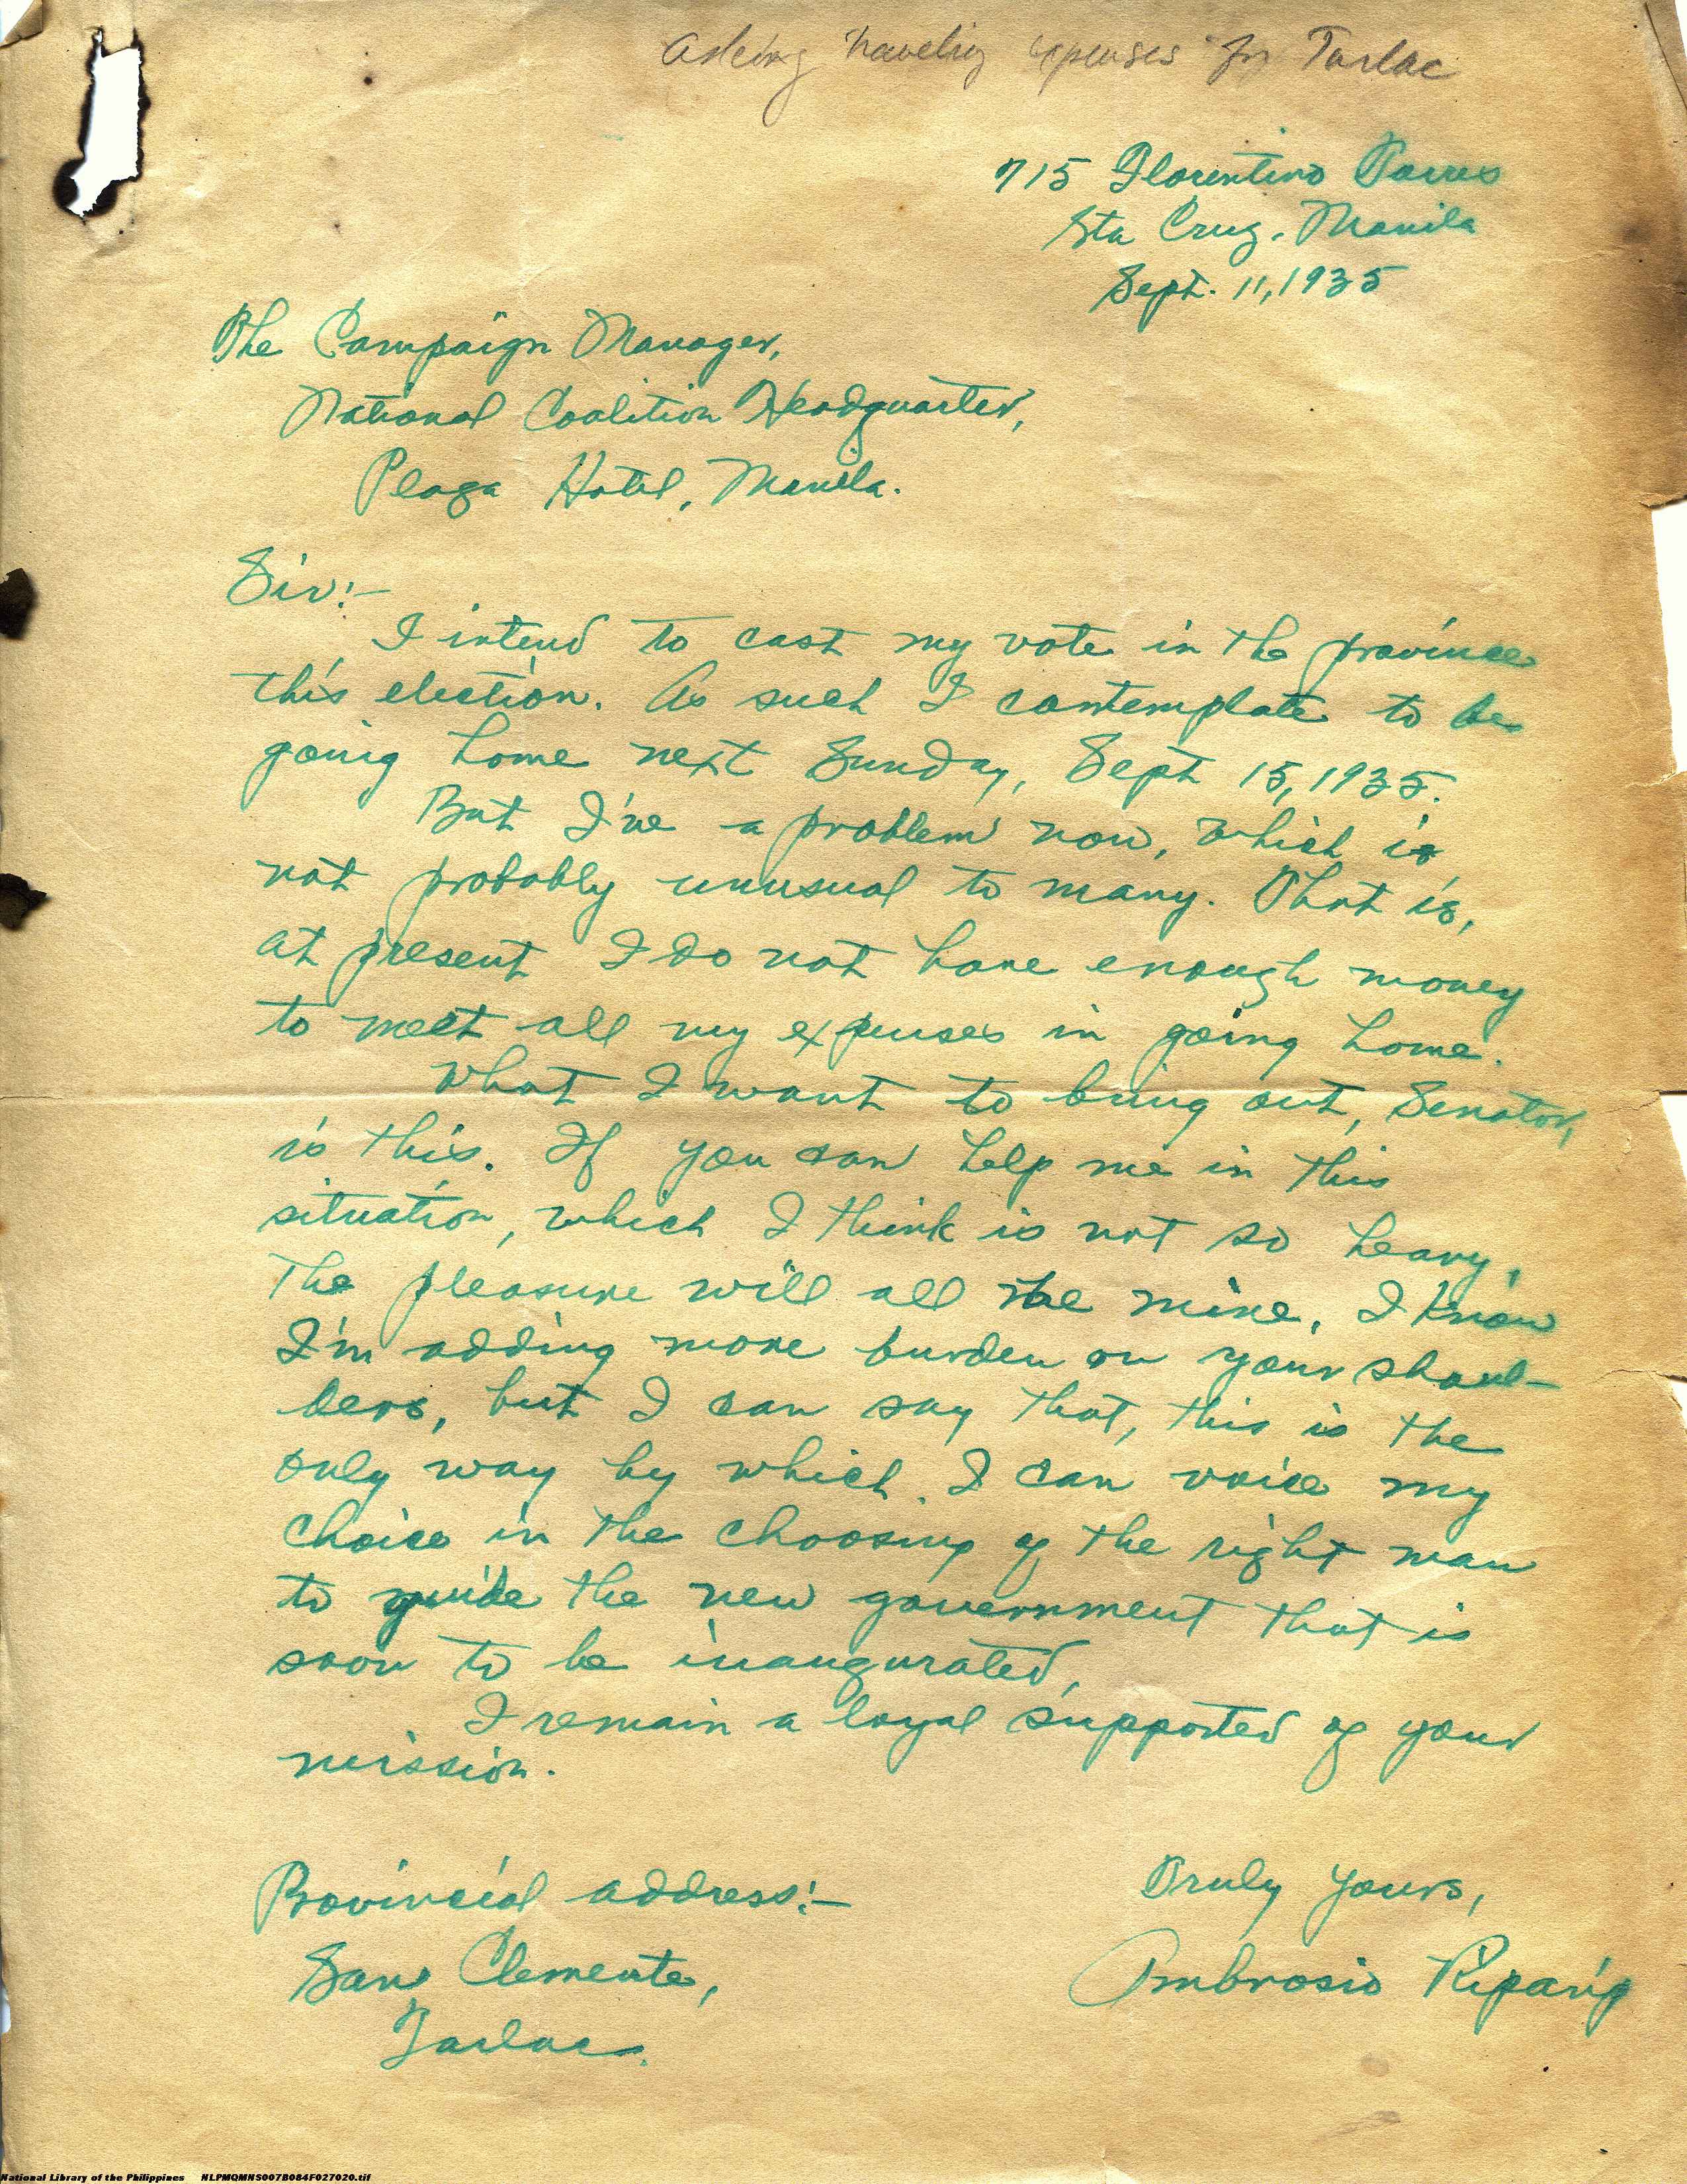 Asking traveling expenses for Tarlac
715 Florentino Torres
Sta Cruz, Manila
Sept. 11, 1935
The Campaign Manager,
National Coalition Headquarter,
Plaza Hotel, Manila.
Sir:-
I intend to cast my vote in the province
this election. As such I contemplate to be
going home next Sunday, Sept 15, 1935.
But I've a problem now, which is
not probably unusual to many. That is,
at present I do not have enough money
to meet all my expenses in going home.
What I want to bring out, Senator,
is this. If you can help me in this
situation, which I think is not so heavy,
the pleasure will all be mine. I know
I'm adding more burden on your shoul-
ders, but I can say that, this is the
only way by which I can voice my
choice in the choosing of the right man
to guide the new government that is
soon to be inaugurated.
I remain a loyal supporter of your
mission.
Provincial address:-
Truly yours,
San Clemente,
Ambrosio Riparip
Tarlac.
National Library of the Philippines NLPMQMNS007B084F027020.tif